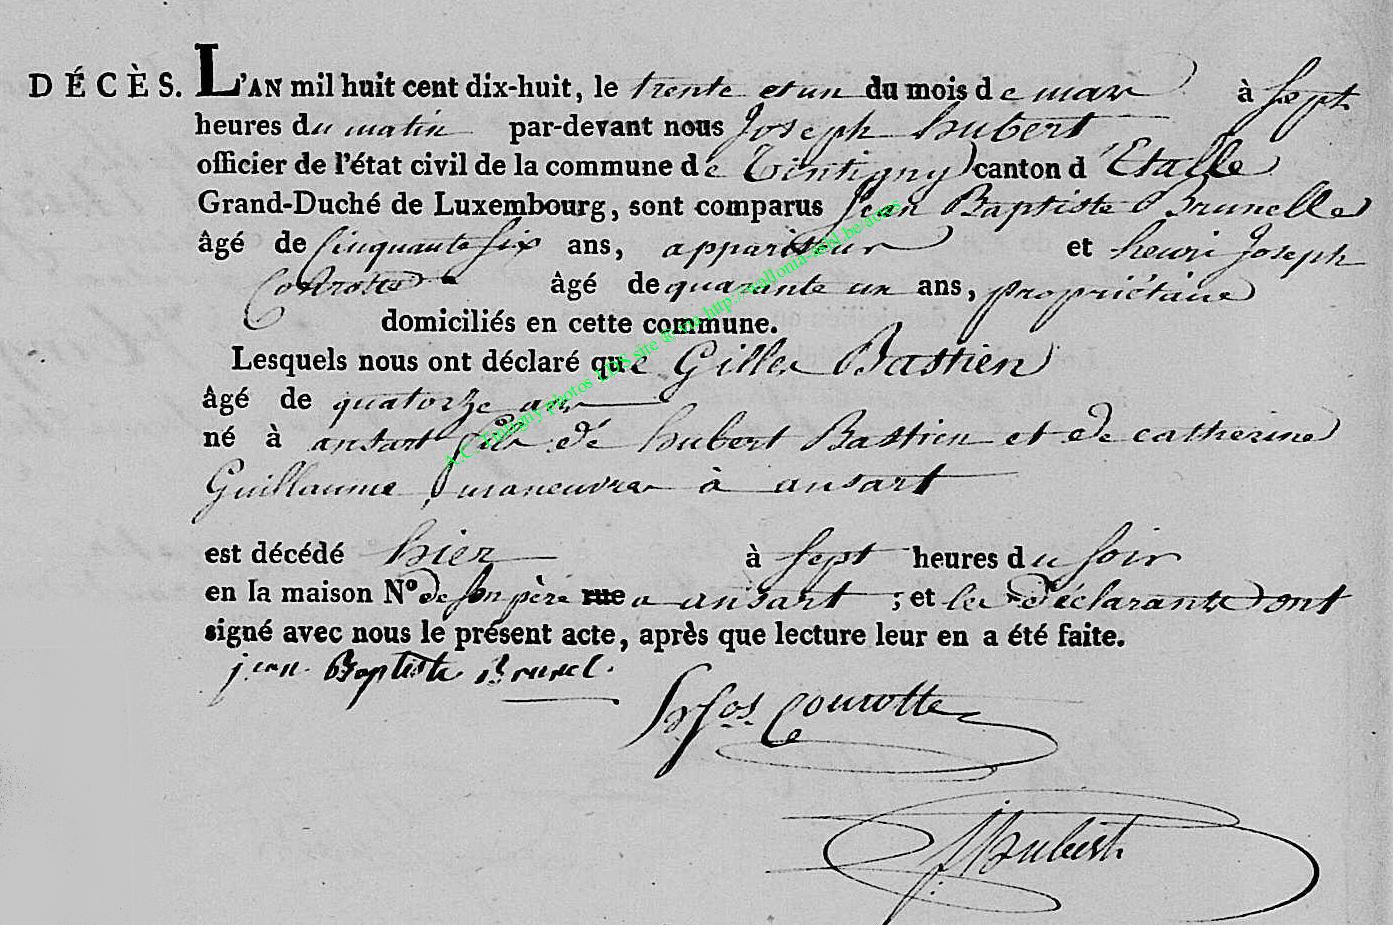 DÉCÈS. L'AN mil huit cent dix-huit, le trente et un du mois de mars à sept
heures du matin par-devant nous Joseph hubert
officier de l'état civil de la commune de Tintigny canton d'Etalle
Grand-Duché de Luxembourg, sont comparus Jean Baptiste Brunelle
âgé de Cinquante six ans, appariteur et henri Joseph
âgé de quarante un ans, propriétaire
domiciliés en cette commune.
Lesquels nous ont déclaré que Gilles Bastien
âgé de quatorze ans
né à ansart fils de hubert Bastien et de catherine
Guillaume, manœuvres à ansart
est décédé hier à sept heures du soir
en la maison N° de son père rue a ansart ; et les déclarants ont
signé avec nous le présent acte, après que lecture leur en a été faite.
jean Baptiste Brunel.
jos. Courotte
J Hubert
A.C. Tintigny photos LDS site @ via http://wallonia-asbl.be/actes